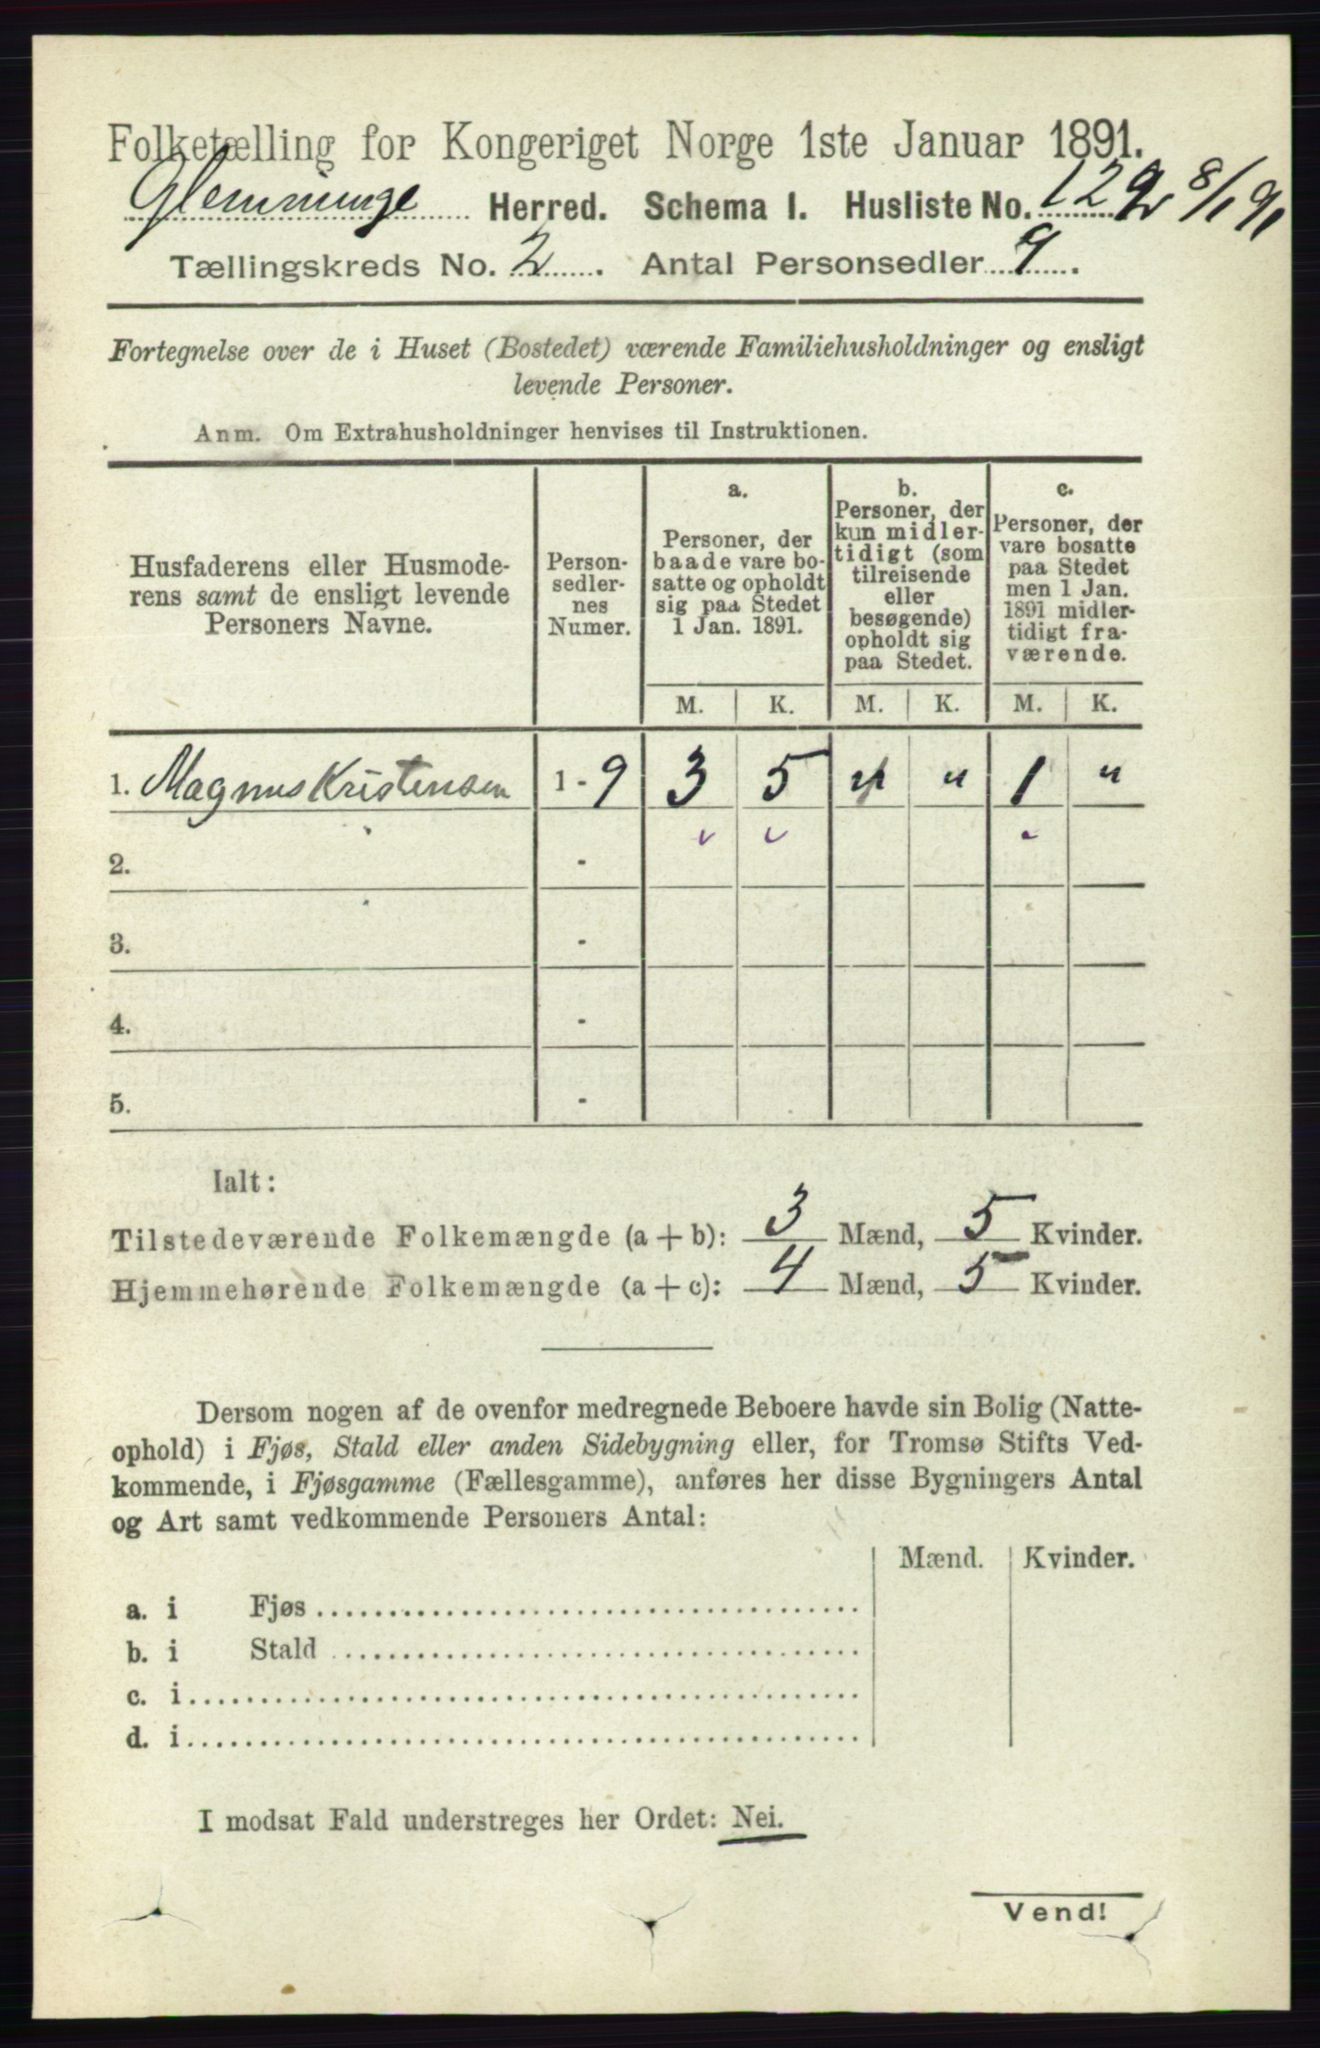 Folketælling for Kongeriget Norge 1ste Januar 1891.
Glemminge Herred. Schema I. Husliste No. 129 8/1 91
Tællingskreds No. 2. Antal Personsedler 9.
Fortegnelse over de i Huset (Bostedet) værende Familiehusholdninger og ensligt
levende Personer.
Anm. Om Extrahusholdninger henvises til Instruktionen.
Husfaderens eller Husmode-
rens samt de ensligt levende
Personers Navne.
Person-
sedler-
nes
Numer.
a.
Personer, der
baade vare bo-
satte og opholdt
sig paa Stedet
1 Jan. 1891.
b.
Personer, der
kun midler-
tidigt (som
tilreisende
eller
besøgende)
opholdt sig
paa Stedet.
c.
Personer, der
vare bosatte
paa Stedet
men 1 Jan.
1891 midler-
tidigt fra-
værende.
M. K. M. K. M. K.
1. Magnus Kristensen 1 - 9 3 5 " " 1 "
2. -
3. -
4. -
5. -
Ialt:
Tilstedeværende Folkemængde (a + b): 3 Mænd, 5 Kvinder.
Hjemmehørende Folkemængde (a + c): 4 Mænd, 5 Kvinder.
Dersom nogen af de ovenfor medregnede Beboere havde sin Bolig (Natte-
ophold) i Fjøs, Stald eller anden Sidebygning eller, for Tromsø Stifts Ved-
kommende, i Fjøsgamme (Fællesgamme), anføres her disse Bygningers Antal
og Art samt vedkommende Personers Antal:
Mænd. Kvinder.
a. i Fjøs
b. i Stald
c. i
d. i
I modsat Fald understreges her Ordet: Nei.
Vend!